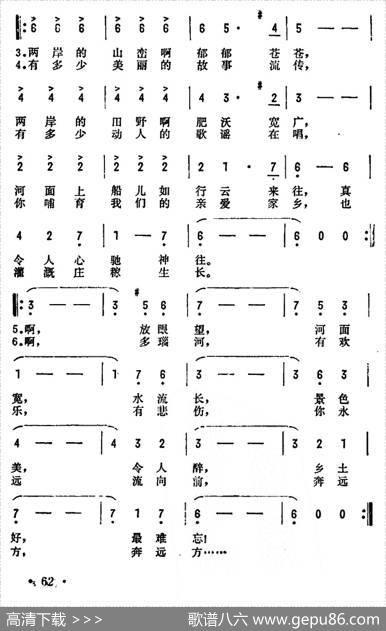 6 6 6 | 6 6 6 | 6 · 5 · #4 | 5 — — |
3.两岸的 山峦啊 郁郁 苍苍,
4.有多少 美丽的 故事 流传,
4 4 4 | 4 4 4 | 4 3 · #2 | 3 — — |
两岸的 田野啊 肥沃 宽广,
有多少 动人的 歌谣 在唱,
2 2 2 | 2 2 2 | 2 1 · 7 | 6 — 6 |
河面上 船儿如 行云 来往, 真
你哺育 我们的 亲爱 家乡, 也
4 2 7 | 1 — 7 | 6 — — | 6 0 0 :|
令人心 驰神 往。
灌溉庄 稼生 长。
|: 3 — — | #3 5 6 | 7 — — | 7 5 3 |
5.啊, 放眼 望, 河面
6.啊, 多瑙 河, 有欢
1 — — | 1 7 6 | 3 — — | 3 6 3 |
宽, 水流 长, 景色
乐, 有悲 伤, 你永
4 — — | 4 3 2 | 3 — — | 3 2 1 |
美, 令人 醉, 乡土
远 流向 前, 奔远
7 — — | 7 3 2 | 6 — — | 6 0 0 :|
好, 最难 忘!
方, 奔远 方……
· 62 ·
高清下载 >>>
歌谱八六 www.gepu86.com